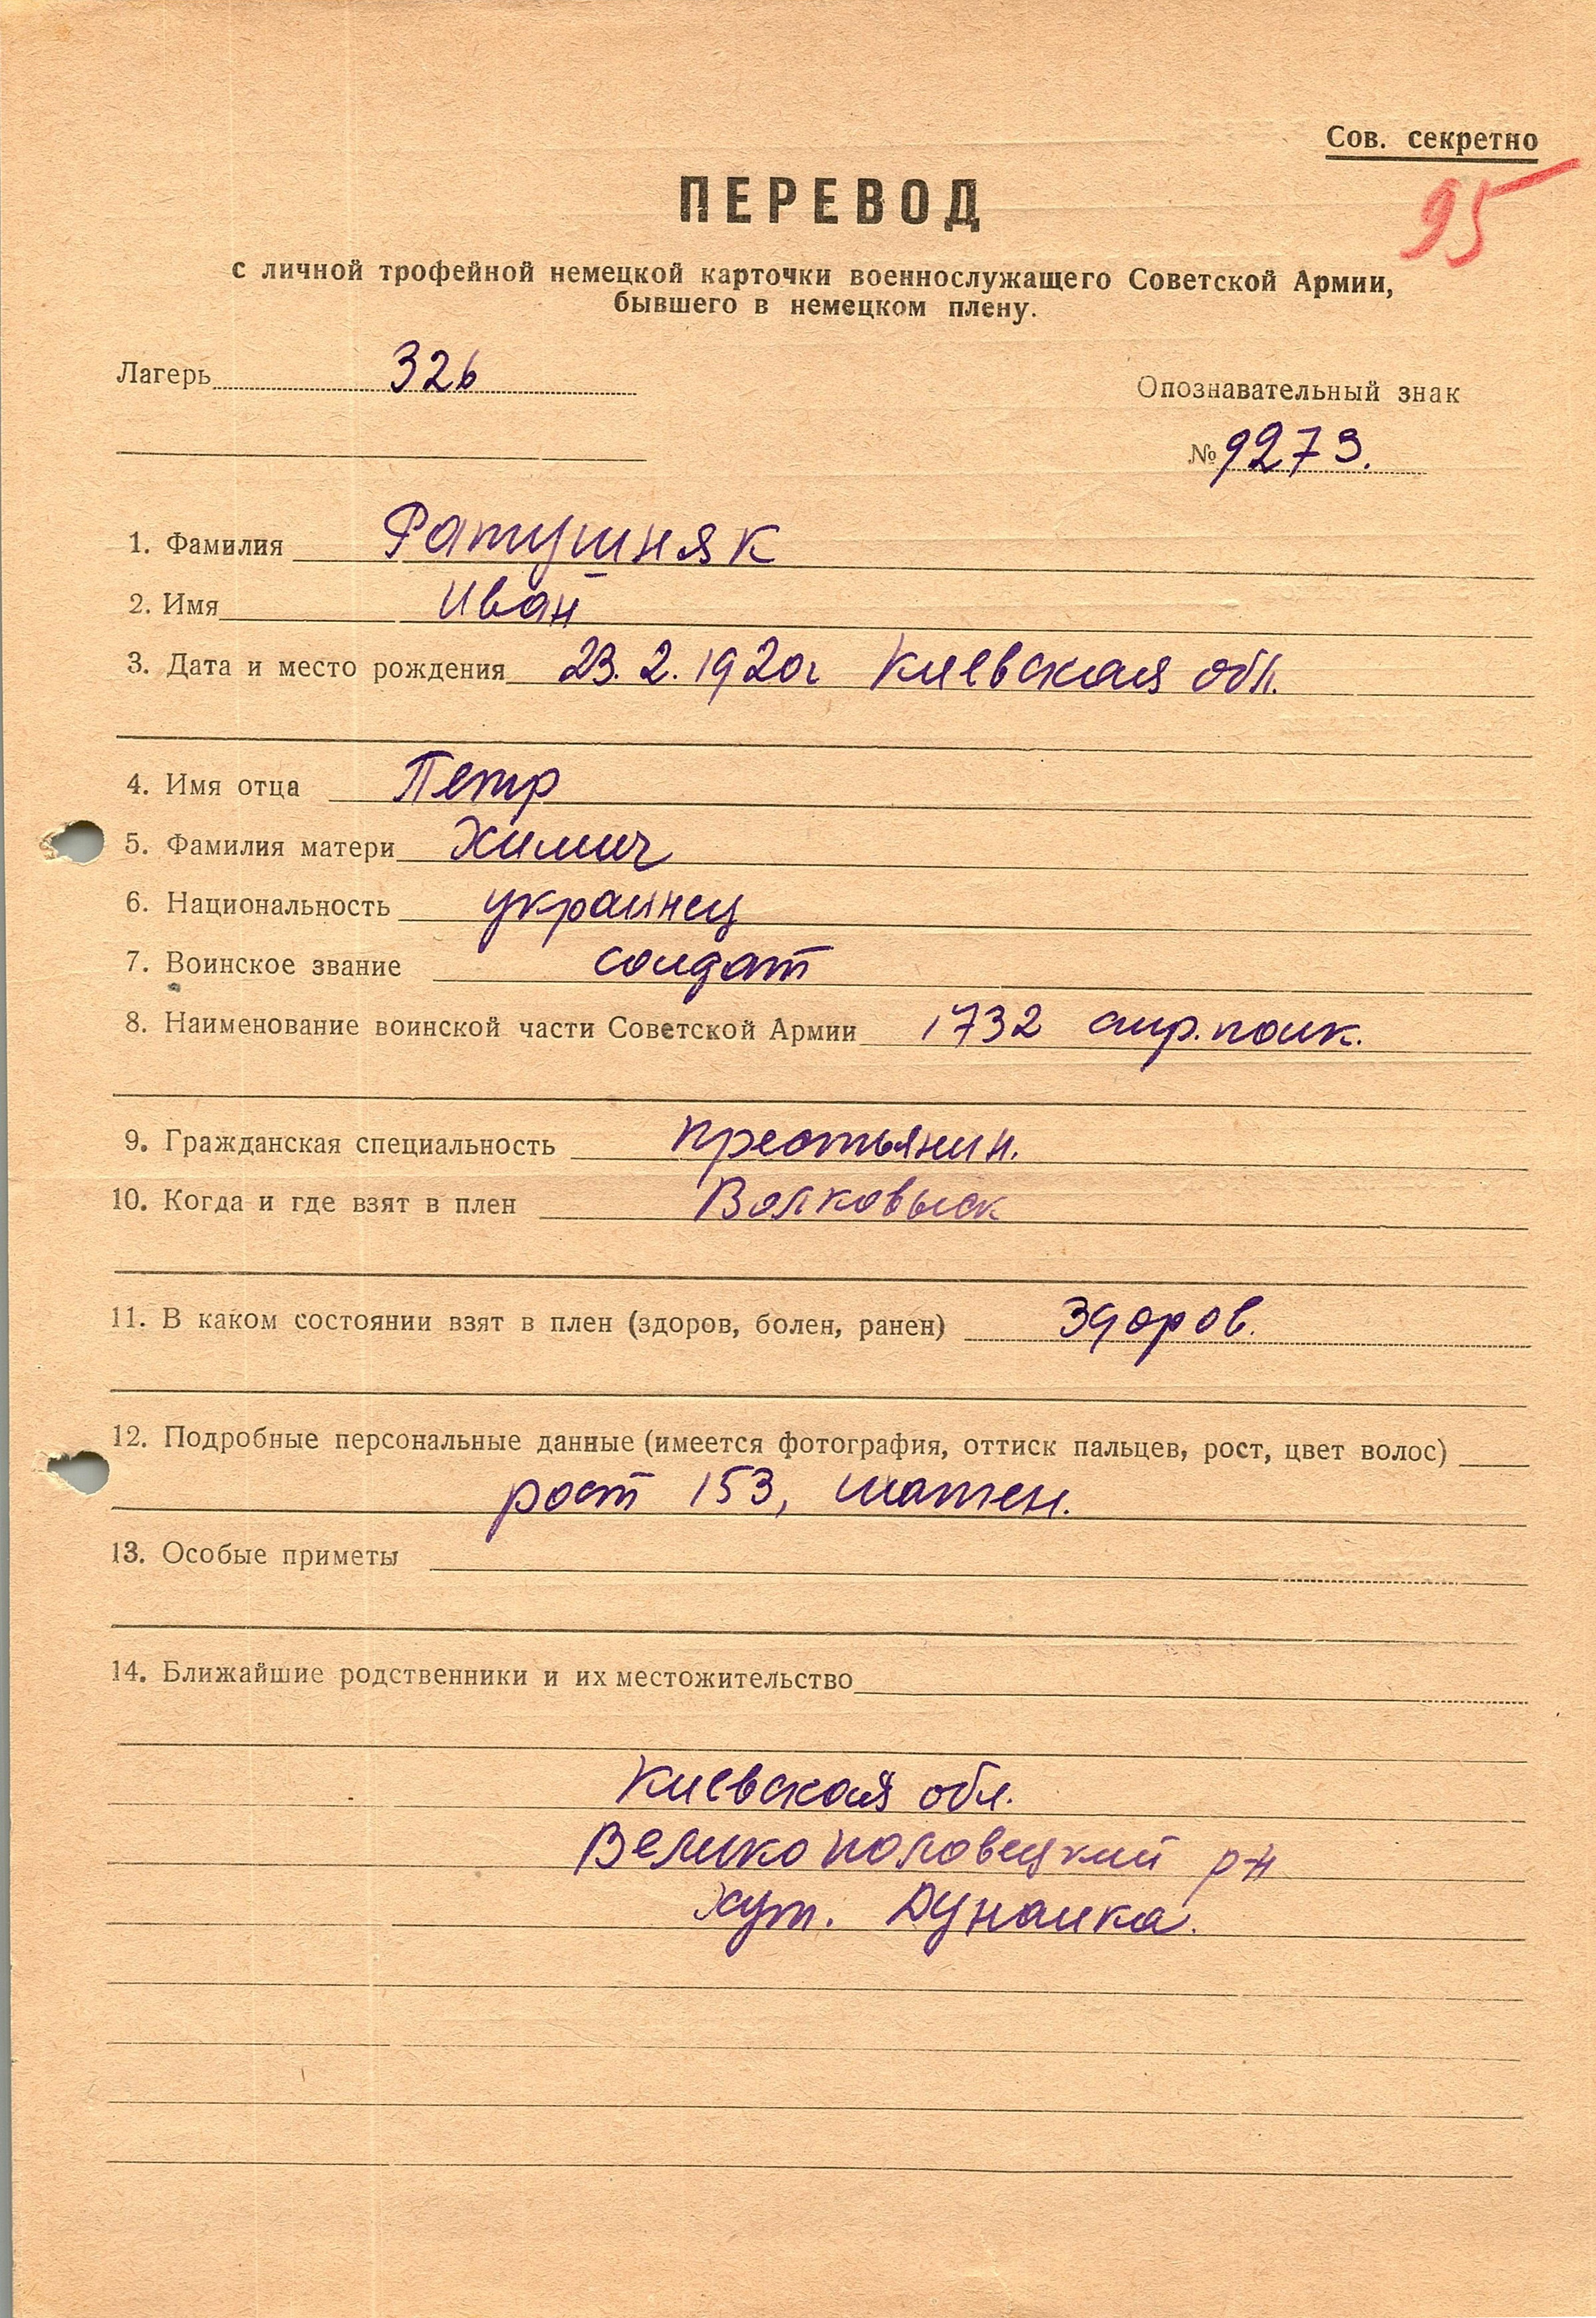 Сов. секретно
95
ПЕРЕВОД
с личной трофейной немецкой карточки военнослужащего Советской Армии,
бывшего в немецком плену.
Лагерь 326
Опознавательный знак
№ 9273.
1. Фамилия Ратушняк
2. Имя Иван
3. Дата и место рождения 23.2.1920г Киевская обл.
4. Имя отца Петр
5. Фамилия матери Химич
6. Национальность украинец
7. Воинское звание солдат
8. Наименование воинской части Советской Армии 1732 стр. полк.
9. Гражданская специальность крестьянин.
10. Когда и где взят в плен Волковыск
11. В каком состоянии взят в плен (здоров, болен, ранен) здоров.
12. Подробные персональные данные (имеется фотография, оттиск пальцев, рост, цвет волос)
рост 153, шатен.
13. Особые приметы
14. Ближайшие родственники и их местожительство
Киевская обл.
Великополовецкий р-н
хут. Дунаика.